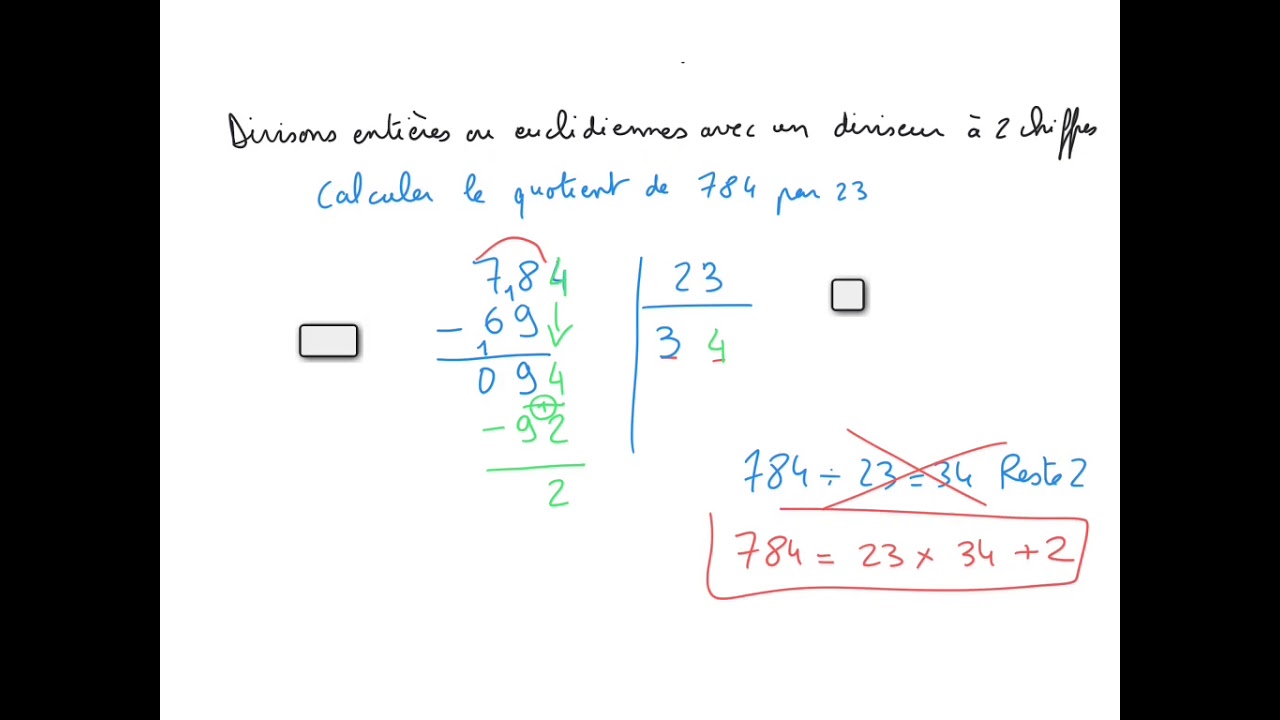 Divisons entières ou euclidiennes avec un diviseur à 2 chiffres
Calculer le quotient de 784 par 23
784 23
- 69 34
094
- 92
2
784 ÷ 23 = 34 Reste 2
784 = 23 × 34 + 2